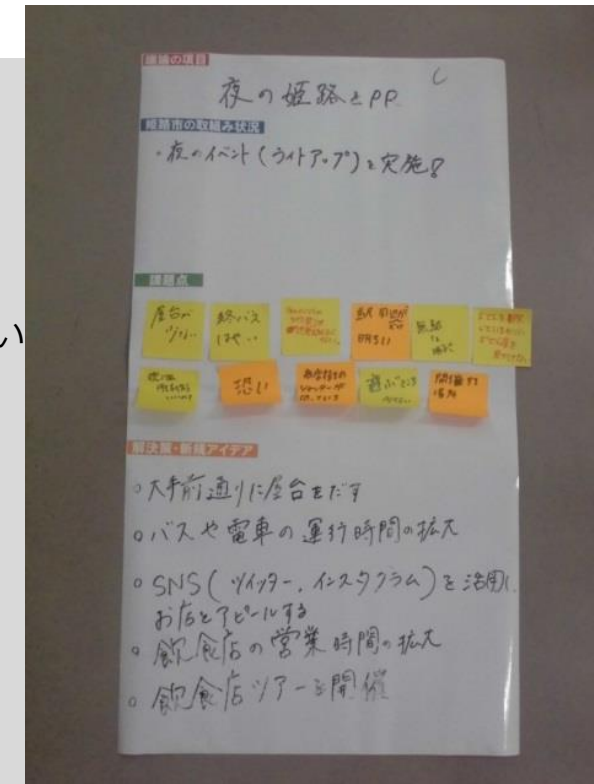 い
議論の項目
夜の姫路をPR
姫路市の取組み状況
・夜のイベント(ライトアップ)を実施?
課題点
屋台が
少ない
終バス
はやい
駅前が
明るい
恐い
商店街の
シャッターが
閉まっている
遊ぶところ
開催する
場所
解決策・新規アイデア
○大手前通りに屋台をだす
○バスや電車の運行時間の拡大
○SNS(ツイッター,インスタグラム)を活用し
お店をアピールする
○飲食店の営業時間の拡大
○飲食店ツアーを開催